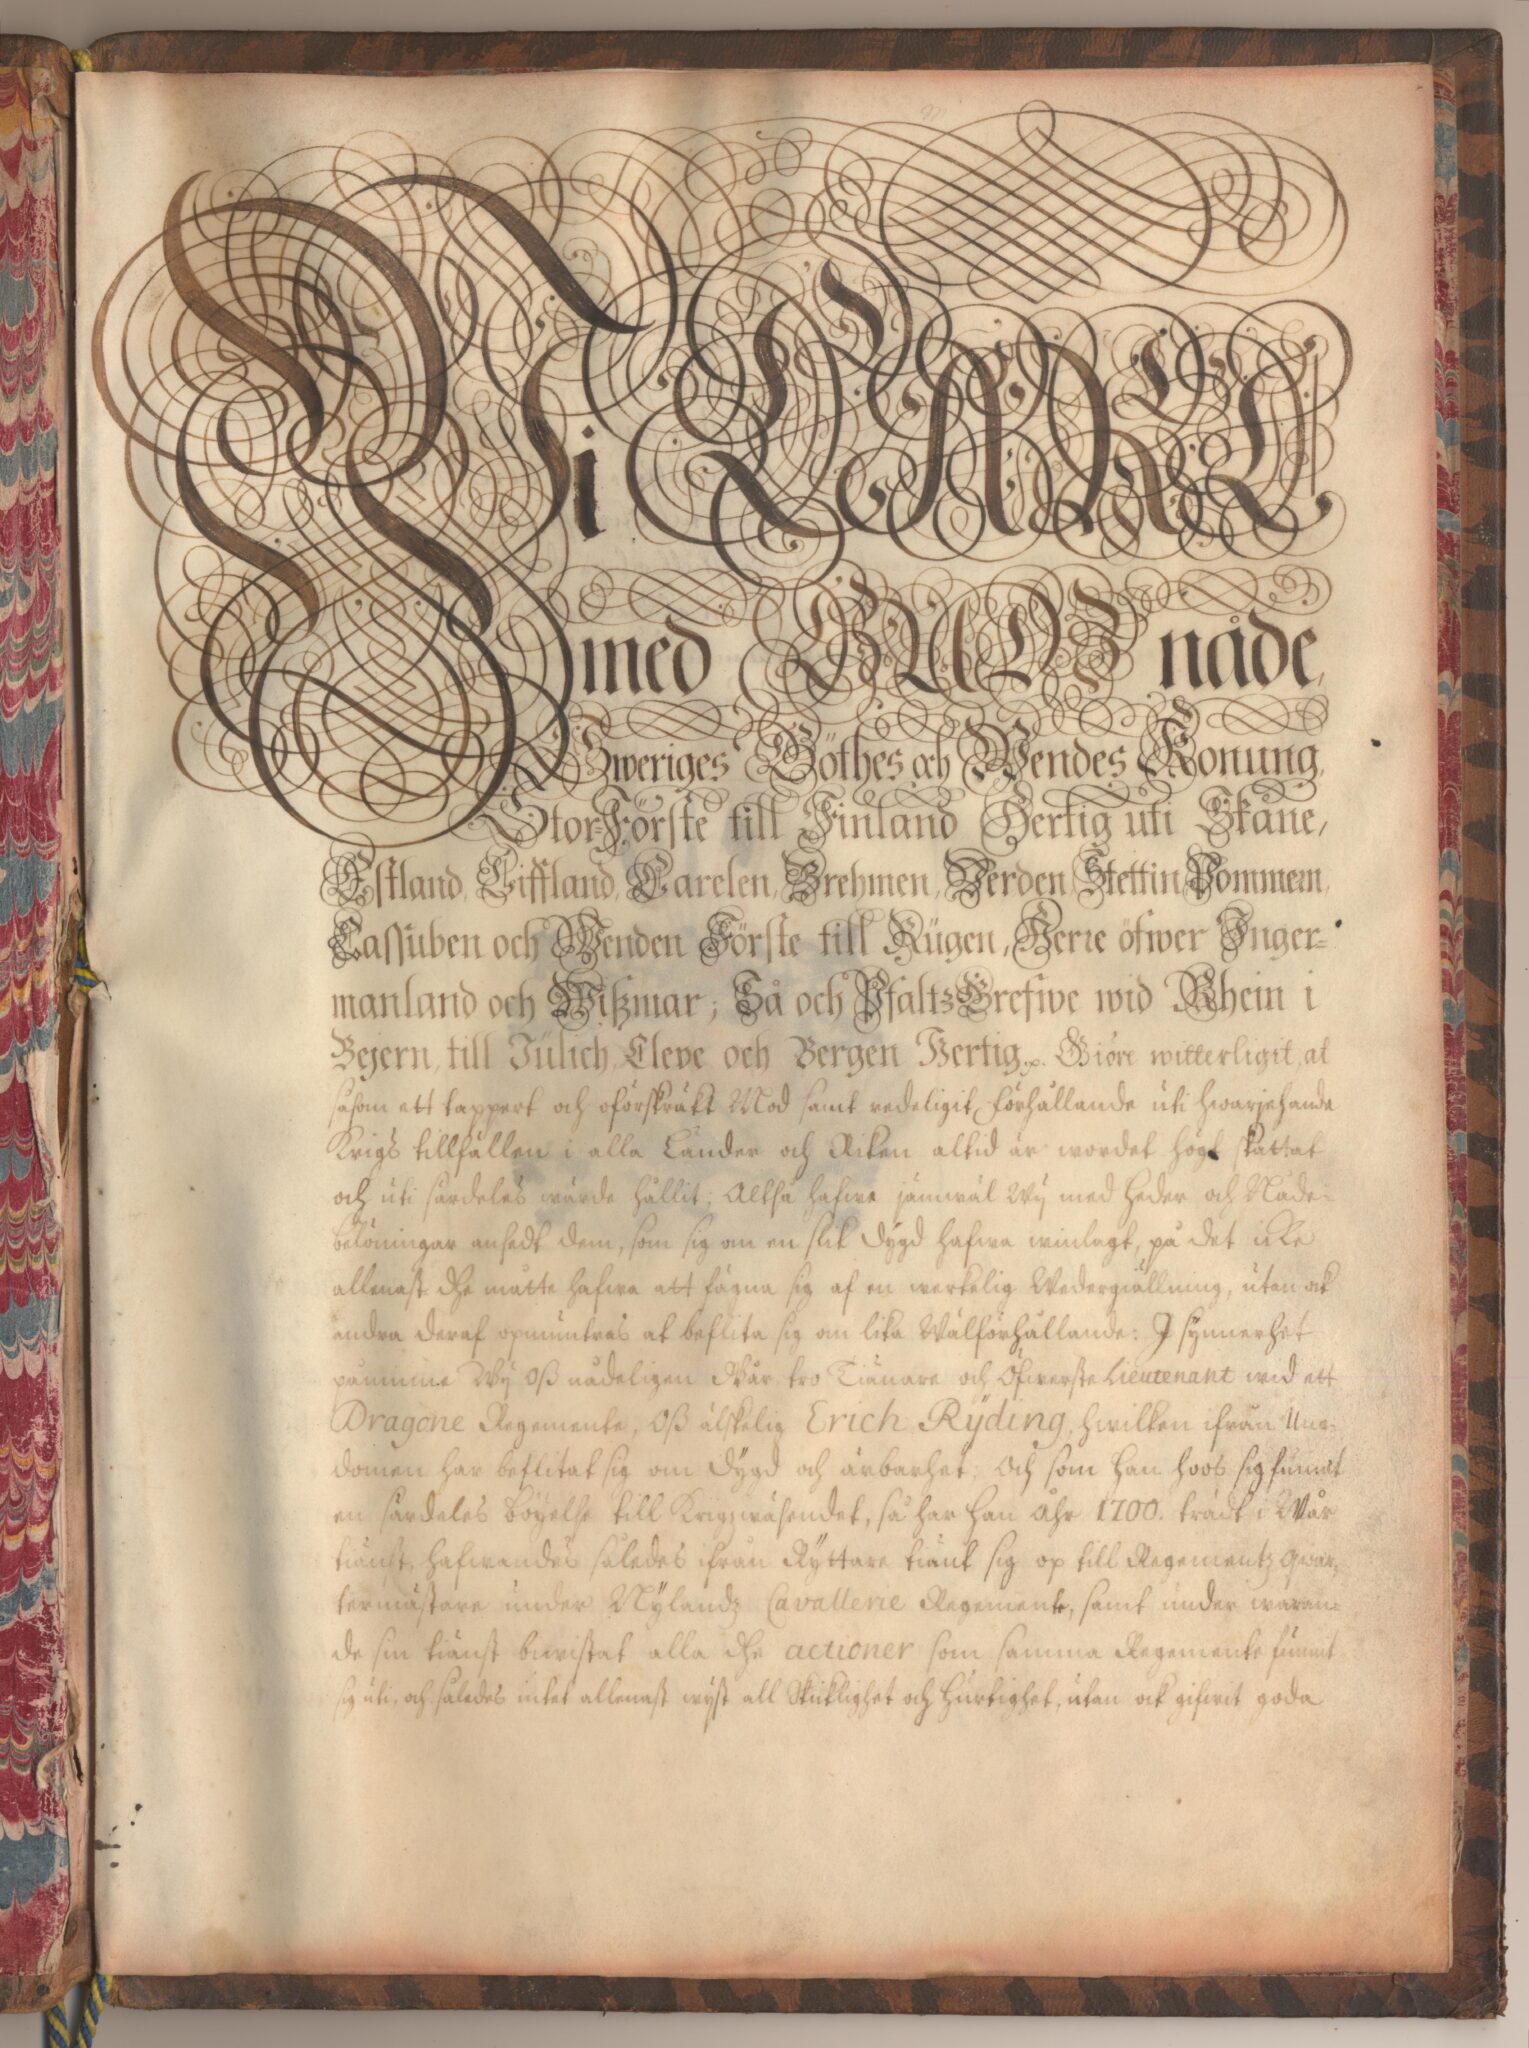 Wi CARL
med GUDZ nåde,
Sweriges Göthes och Wendes Konung,
Stor-Förste till Finland Hertig uti Skåne,
Estland, Liffland, Carelen, Brehmen, Verden, Stettin Pommern,
Cassuben och Wenden Förste till Rügen, Herre öfwer Inger-
manland och Wißmar; Så och Pfaltz Grefwe wid Rhein i
Bejern, till Jülich, Cleve och Bergen Hertig. Giöre witterligit, at
såsom ett tappert och oförskräkt Mod samt redeligit förhållande uti hwarjehanda
Krigs tillfällen i alla Länder och Riken altid är wordet högt skattat
och uti särdeles wärde hållit; Altså hafwe jämwäl Wij med heder och Nåde-
belöningar ansedt dem, som sig om en slik dygd hafwa winlagt, på det icke
allenast dhe måtte hafwa att fägna sig af en werkelig Wedergiällning, utan ock
andra deraf opmuntras at beflita sig om lika Wälförhållande: I synnerhet
påminne Wij Oß nådeligen Wår tro Tiänare och Öfwerste Lieutenant wid ett
Dragone Regemente, Oß älskelig Erich Rÿding, hwilken ifrån Ung-
domen har beflitat sig om dygd och ärbarhet; Och som han hoos sig funnit
en särdeles böyelse till Krigzwäsendet, så har han Åhr 1700. trädt i Wår
tiänst, hafwandes således ifrån Ryttare tiänt sig op till Regementz Qwar-
termästare under Nÿlandz Cavallerie Regemente, samt under waran-
de sin tiänst biwistat alla dhe actioner som samma Regemente funnit
sig uti, och således intet allenast wyst all Skicklighet och Hurtighet, utan ock gifwit goda